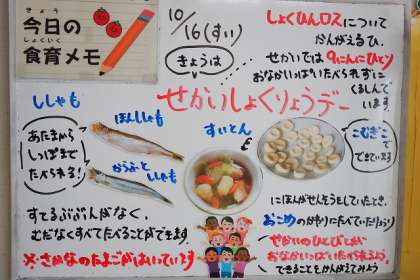 きょう
今日の
しょくいく
食育メモ
10/16(すい)
きょうは
しょくひんロスについて
かんがえるひ。
せかいでは9にんにひとり
おなかいっぱいたべられずに
くるしんで
います。
せかいしょくりょうデー
ししゃも
あたまから
しっぽまで
たべられる!
ほんししゃも
からふと
ししゃも
すいとん
こむぎこ
で
できています
すてるぶぶんがなく、
むだなくすべてたべることができます
※さかなのたまごがはいっています
にほんがせんそうをしていたとき、
おこめのかわりにたべていたりょうり
せかいのひとびとが
おなかいっぱいたべられるよう、
できることをかんがえてみよう